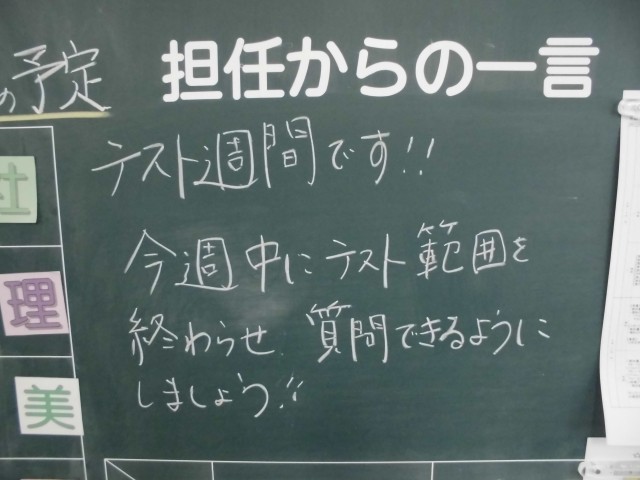 の予定
担任からの一言
テスト週間です!!
今週中にテスト範囲を
終わらせ、質問できるように
しましょう!!
社
理
美